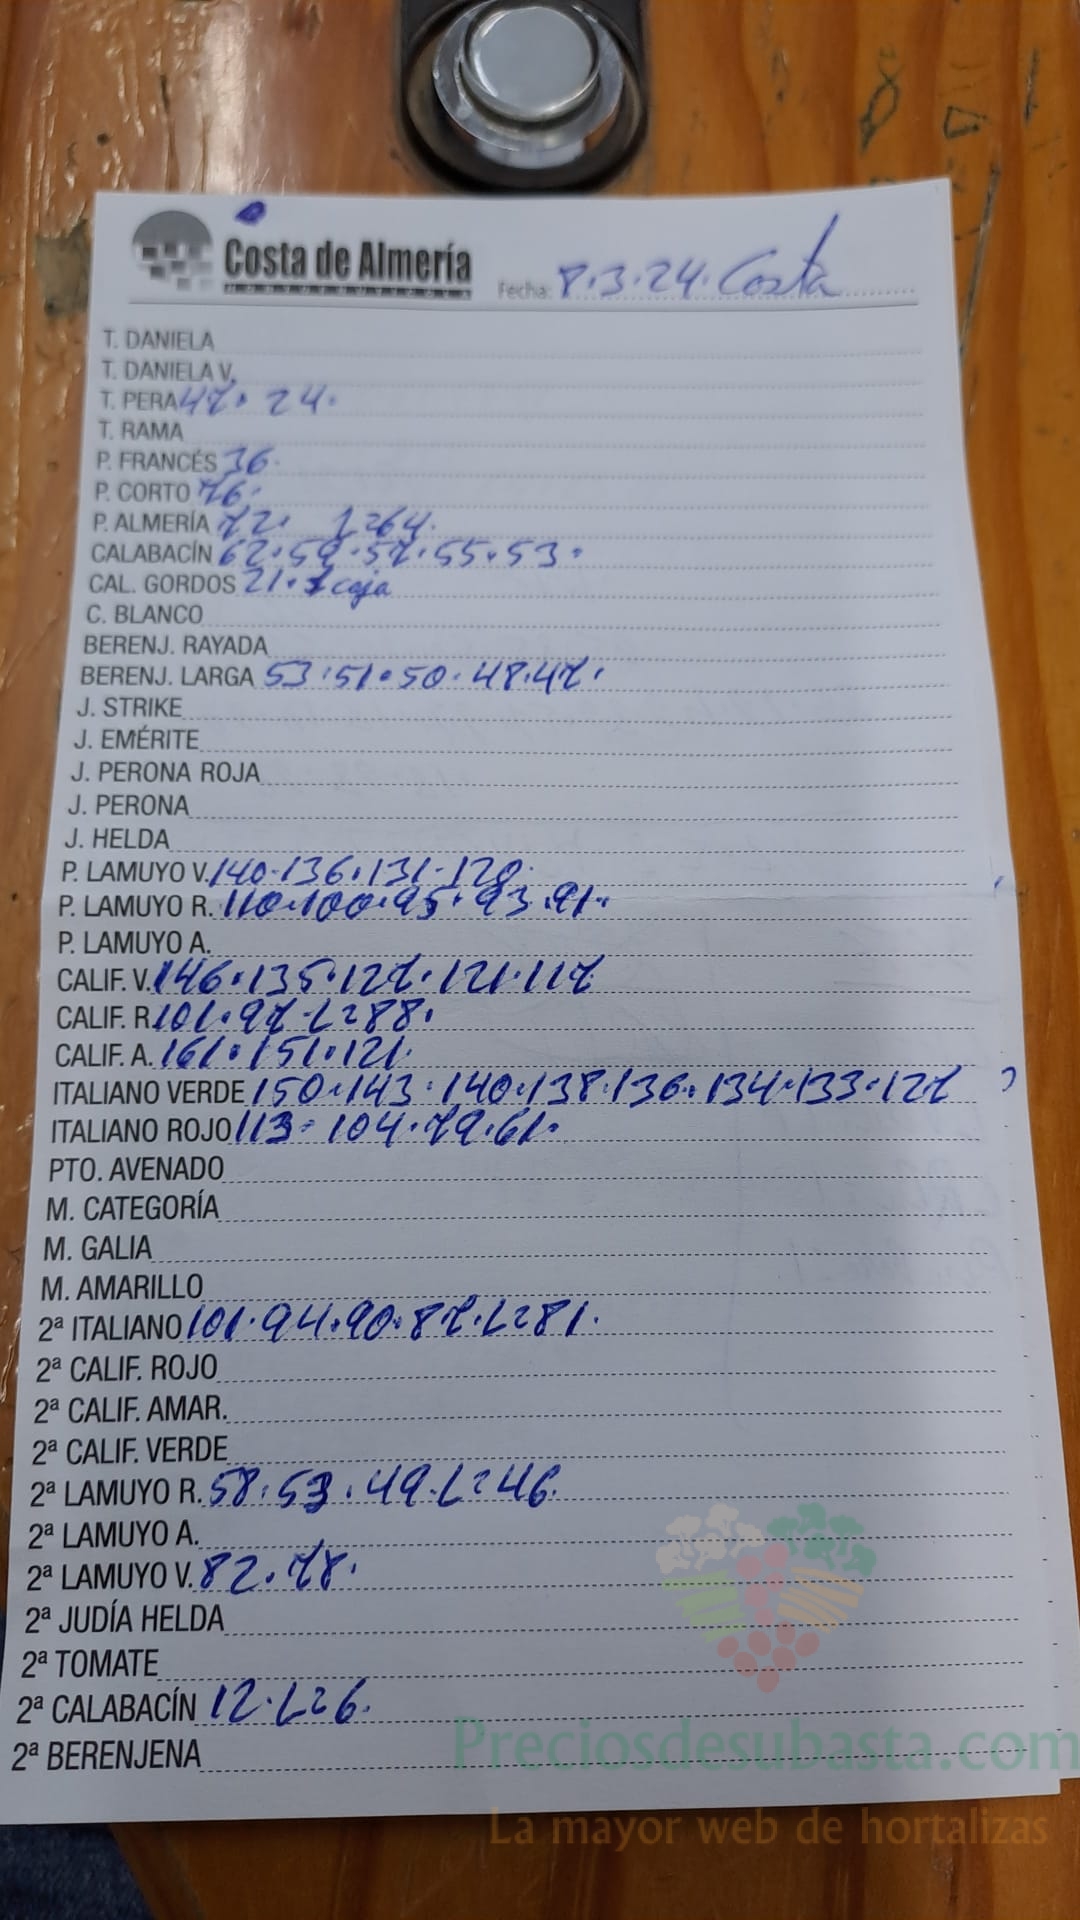 Costa de Almería
HORTOFRUTÍCOLA
Fecha: 8.3.24. Costa
T. DANIELA
T. DANIELA V.
T. PERA 47. 24.
T. RAMA
P. FRANCÉS 36.
P. CORTO 76.
P. ALMERÍA 72. L=64.
CALABACÍN 62.59.57.55.53.
CAL. GORDOS 21.1 caja
C. BLANCO
BERENJ. RAYADA
BERENJ. LARGA 53.51.50.48.47.
J. STRIKE
J. EMÉRITE
J. PERONA ROJA
J. PERONA
J. HELDA
P. LAMUYO V. 140.136.131.120.
P. LAMUYO R. 110.100.95.93.91.
P. LAMUYO A.
CALIF. V. 146.135.127.121.117
CALIF. R. 101.97.L=88.
CALIF. A. 161.151.121.
ITALIANO VERDE 150.143.140.138.136.134.133.127
ITALIANO ROJO 113.104.79.61.
PTO. AVENADO
M. CATEGORÍA
M. GALIA
M. AMARILLO
2ª ITALIANO 101.94.90.87.L=81.
2ª CALIF. ROJO
2ª CALIF. AMAR.
2ª CALIF. VERDE
2ª LAMUYO R. 58.53.49.L=46.
2ª LAMUYO A.
2ª LAMUYO V. 82.78.
2ª JUDÍA HELDA
2ª TOMATE
2ª CALABACÍN 12.L=6.
2ª BERENJENA
Preciosdesubasta.com
La mayor web de hortalizas